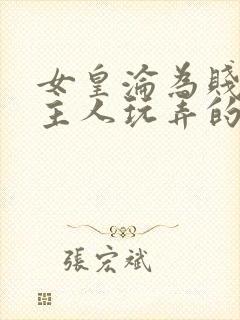 女皇淪為賤
主人玩弄的
張宏斌